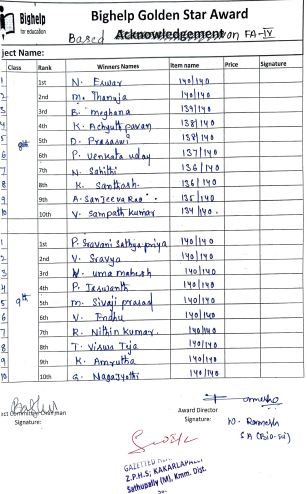 Bighelp
for education
Bighelp Golden Star Award
Acknowledgement
Based on FA-IV
ject Name:
Class Rank Winners Names Item name Price Signature
8th
1 1st N. Eswar 140/140
2 2nd M. Thanuja 140/140
3 3rd B. meghana 139/140
4 4th K. Achyuth pavan 138/140
5 5th D. Prasasvi 138/140
6 6th P. Venkata uday 137/140
7 7th N. Sahithi 136/140
8 8th K. Santhosh 136/140
9 9th A. Sanjeeva Rao 135/140
10 10th V. Sampath kumar 134/140
9th
1 1st P. Sravani Sathya priya 140/140
2 2nd V. Sravya 140/140
3 3rd V. uma mahesh 140/140
4 4th P. Jaswanth 140/140
5 5th M. Sivaji prasad 140/140
6 6th V. Indhu 140/140
7 7th R. Nithin kumar. 140/140
8 8th T. Viswa Teja 140/140
9 9th K. Amrutha 140/140
10 10th G. Nagajyothi 140/140
Signature:
Award Director
Signature:
Z.P.H.S, KAKARLAPALLI
Sathupally (M), Kmm. Dist.